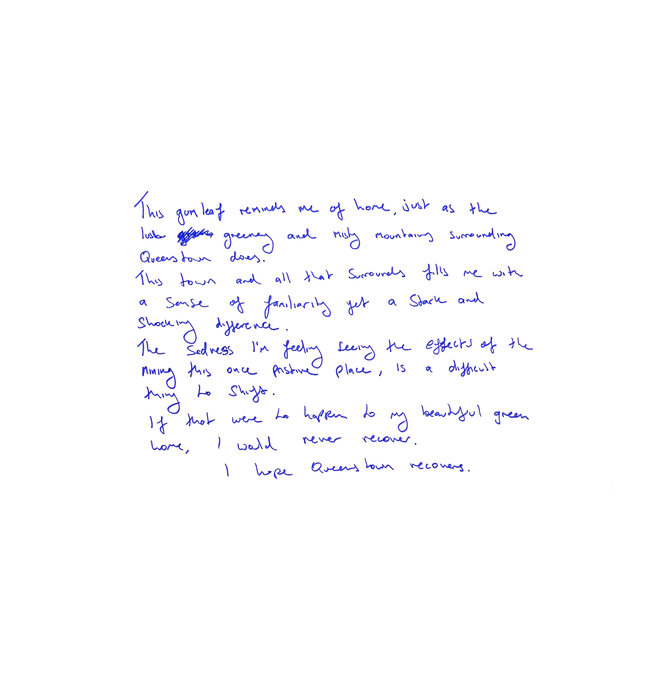 This gum leaf reminds me of home, just as the
lush greeney and misty mountains surrounding
Queenstown does.
This town and all that surrounds fills me with
a sense of familiarity yet a stark and
shocking difference.
The sadness I'm feeling seeing the effects of the
mining this once pristine place, is a difficult
thing to shift.
If that were to happen to my beautiful green
home, I would never recover.
I hope Queenstown recovers.